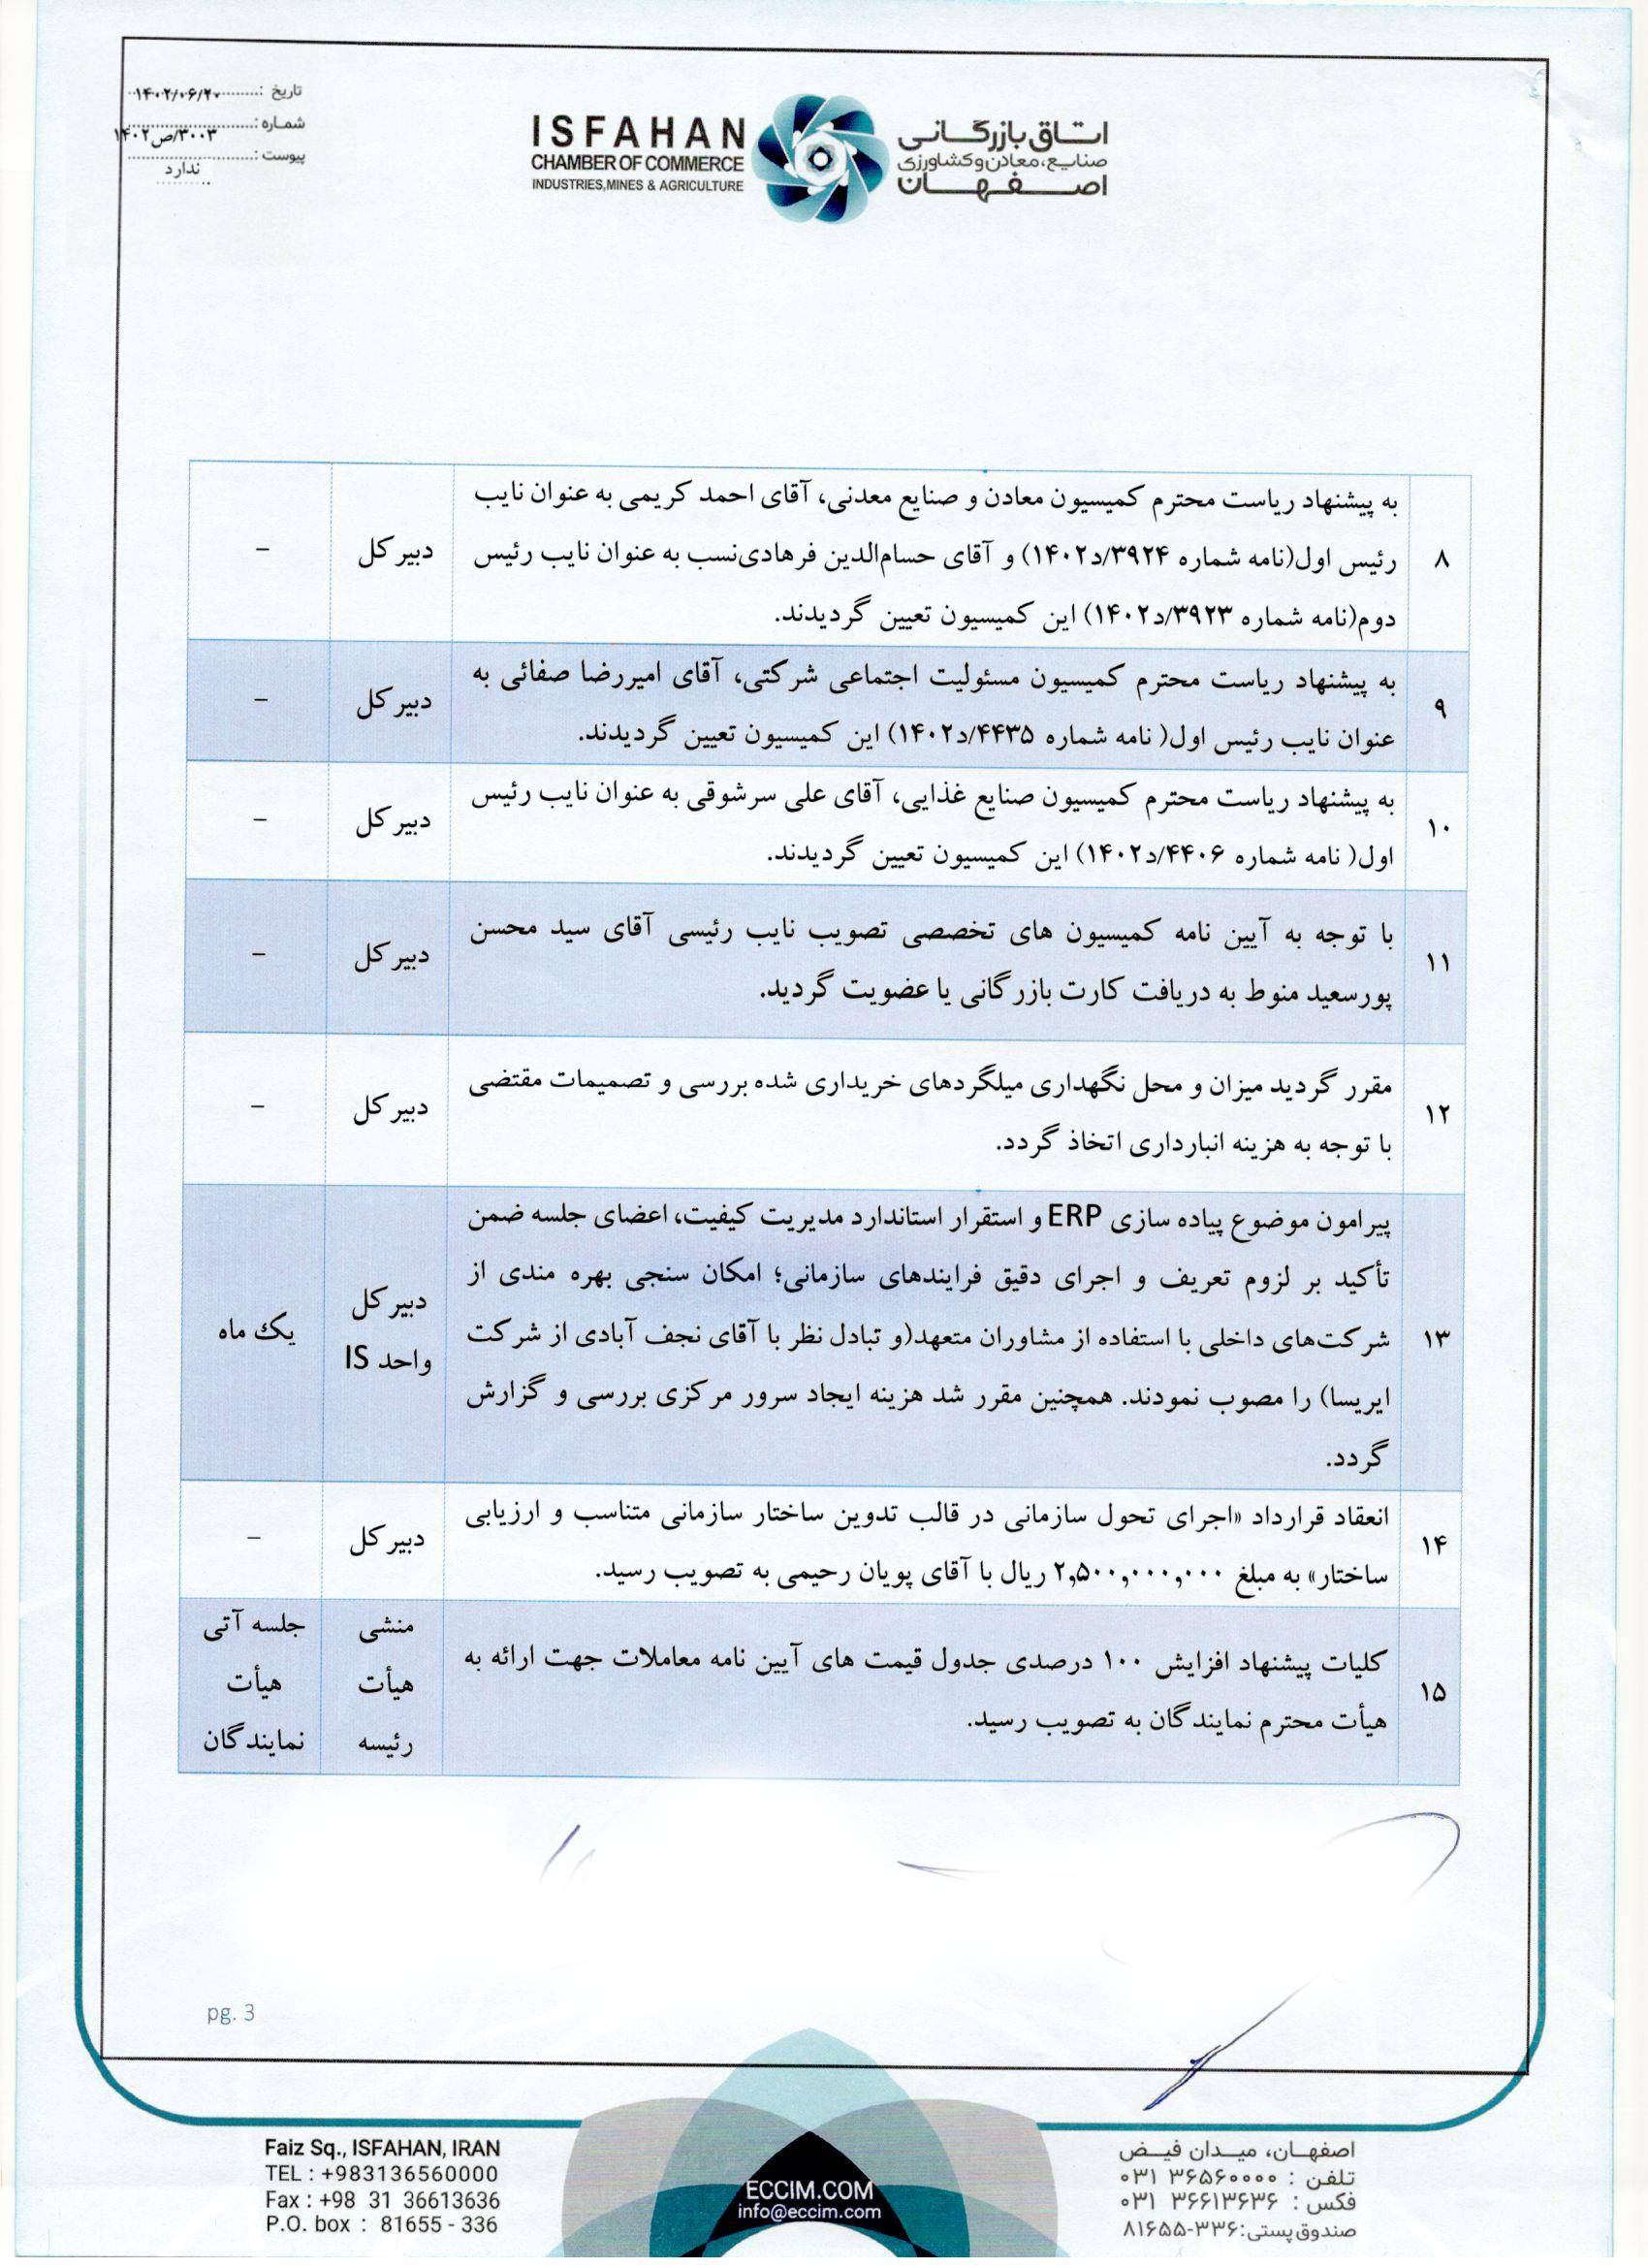 تاریخ : ۱۴۰۲/۰۶/۲۰
شماره : ۳۰۰۳/ص۱۴۰۲
پیوست : ندارد
ISFAHAN
CHAMBER OF COMMERCE
INDUSTRIES,MINES & AGRICULTURE
اتاق بازرگانی
صنایع،معادن و کشاورزی
اصفهان
۸
به پیشنهاد ریاست محترم کمیسیون معادن و صنایع معدنی، آقای احمد کریمی به عنوان نایب
رئیس اول(نامه شماره ۳۹۲۴/د۱۴۰۲) و آقای حسام‌الدین فرهادی‌نسب به عنوان نایب رئیس
دوم(نامه شماره ۳۹۲۳/د۱۴۰۲) این کمیسیون تعیین گردیدند.
دبیر کل
–
۹
به پیشنهاد ریاست محترم کمیسیون مسئولیت اجتماعی شرکتی، آقای امیررضا صفائی به
عنوان نایب رئیس اول( نامه شماره ۴۴۳۵/د۱۴۰۲) این کمیسیون تعیین گردیدند.
دبیر کل
–
۱۰
به پیشنهاد ریاست محترم کمیسیون صنایع غذایی، آقای علی سرشوقی به عنوان نایب رئیس
اول( نامه شماره ۴۴۰۶/د۱۴۰۲) این کمیسیون تعیین گردیدند.
دبیر کل
–
۱۱
با توجه به آیین نامه کمیسیون های تخصصی تصویب نایب رئیسی آقای سید محسن
پورسعید منوط به دریافت کارت بازرگانی یا عضویت گردید.
دبیر کل
–
۱۲
مقرر گردید میزان و محل نگهداری میلگردهای خریداری شده بررسی و تصمیمات مقتضی
با توجه به هزینه انبارداری اتخاذ گردد.
دبیر کل
–
۱۳
پیرامون موضوع پیاده سازی ERP و استقرار استاندارد مدیریت کیفیت، اعضای جلسه ضمن
تأکید بر لزوم تعریف و اجرای دقیق فرایندهای سازمانی؛ امکان سنجی بهره مندی از
شرکت‌های داخلی با استفاده از مشاوران متعهد(و تبادل نظر با آقای نجف آبادی از شرکت
ایریسا) را مصوب نمودند. همچنین مقرر شد هزینه ایجاد سرور مرکزی بررسی و گزارش
گردد.
دبیر کل
واحد IS
یک ماه
۱۴
انعقاد قرارداد «اجرای تحول سازمانی در قالب تدوین ساختار سازمانی متناسب و ارزیابی
ساختار» به مبلغ ۲,۵۰۰,۰۰۰,۰۰۰ ریال با آقای پویان رحیمی به تصویب رسید.
دبیر کل
–
۱۵
کلیات پیشنهاد افزایش ۱۰۰ درصدی جدول قیمت های آیین نامه معاملات جهت ارائه به
هیأت محترم نمایندگان به تصویب رسید.
منشی
هیأت
رئیسه
جلسه آتی
هیأت
نمایندگان
pg. 3
Faiz Sq., ISFAHAN, IRAN
TEL : +983136560000
Fax : +98 31 36613636
P.O. box : 81655 - 336
ECCIM.COM
info@eccim.com
اصفهان، میدان فیض
تلفن : ۳۶۵۶۰۰۰۰ ۰۳۱
فکس : ۳۶۶۱۳۶۳۶ ۰۳۱
صندوق پستی:۳۳۶-۸۱۶۵۵